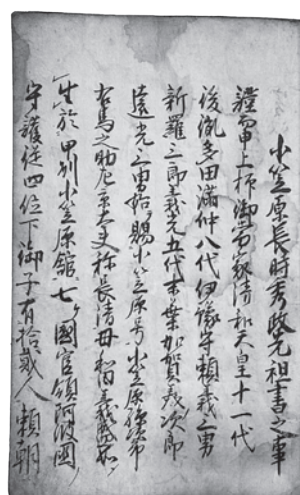 小笠原長時秀政元祖書之事
謹而申上抑御当家清和天皇十一代
後胤多田満仲八代伊豫守頼義三男
新羅三郎義光五代末葉加賀美次郎
遠光之男始賜小笠原号小笠原孫次郎
右馬之助左京大夫称長清母和田義盛女
生於甲州小笠原館七ヶ国官領阿波国
守護従四位下御子有拾貳人頼朝